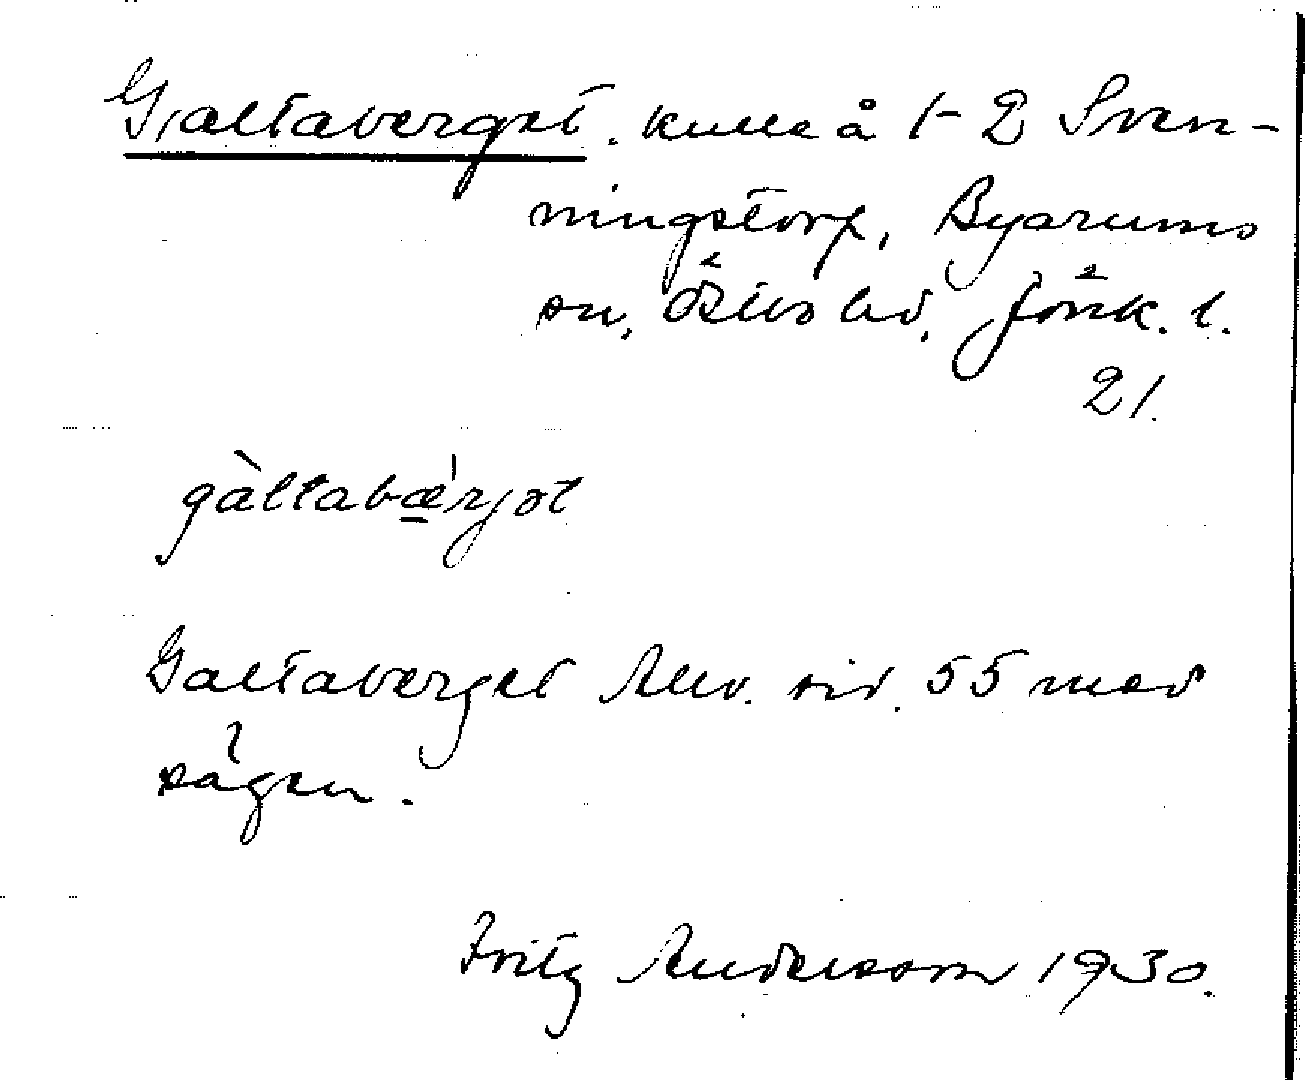 Galtaberget. kulle å 1-2 Sven-
ningstorp, Byarums
sn, Östbo hd, Jönk. l.
21.
gàltabæ̀rjət
Galtaberget Allv. sid. 55 med
sägen.
Fritz Andersson 1930.